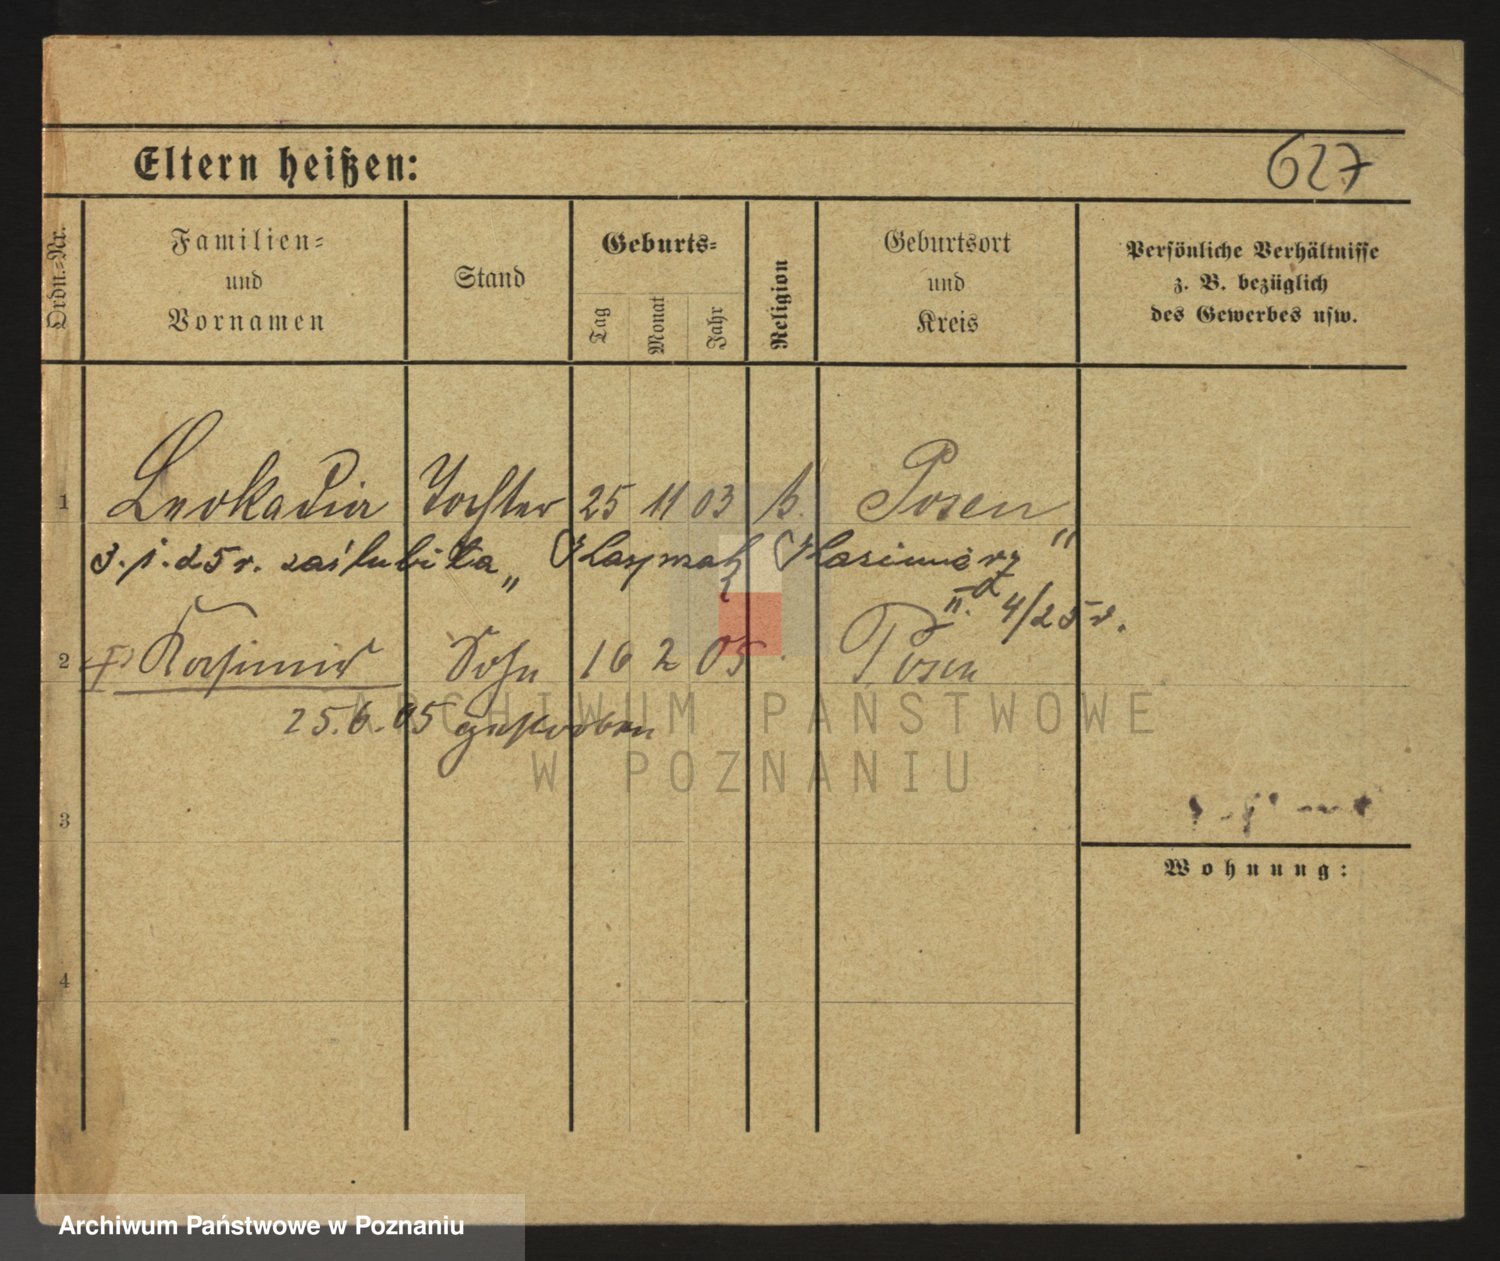 Eltern heißen:
627
Ordn.-Nr.
Familien-
und
Vornamen
Stand
Geburts-
Tag
Monat
Jahr
Religion
Geburtsort
und
Kreis
Persönliche Verhältnisse
z. B. bezüglich
des Gewerbes usw.
1 Leokadia Tochter 25 11 03 k. Posen
3. 1. 25 r. zaślubiła „ Kasprzak Kazimierz “
4/25 r.
2 Kasimir Sohn 16 2 05 Posen
25.6.05 gestorben
3
Wohnung:
4
ARCHIWUM PAŃSTWOWE
W POZNANIU
Archiwum Państwowe w Poznaniu